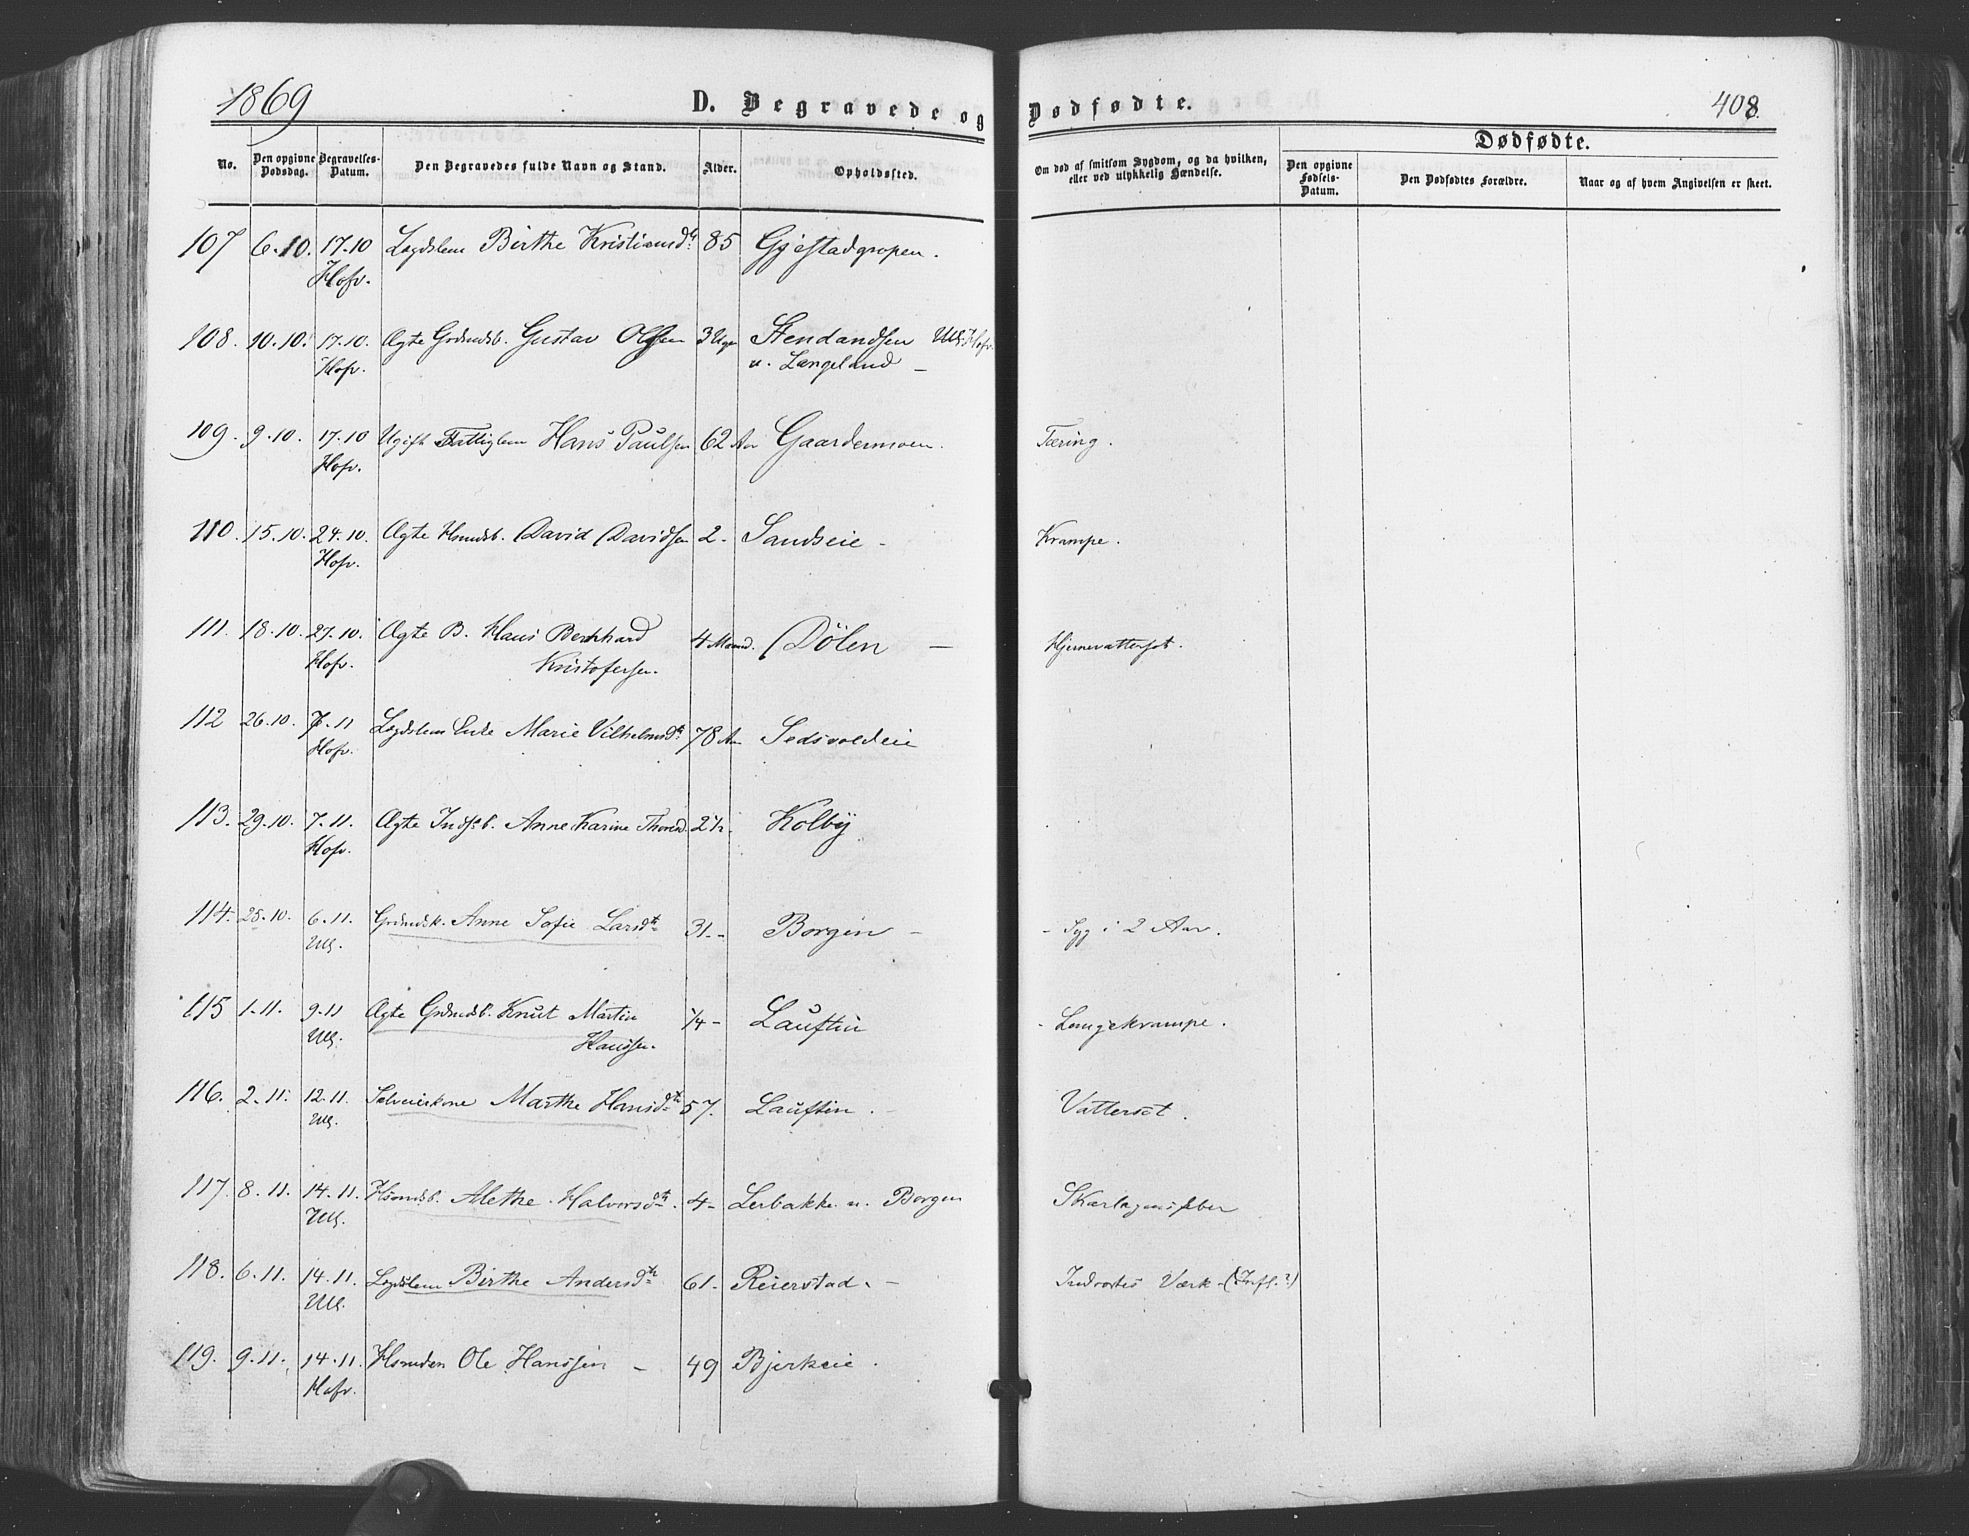 1869 D. Begravede og Dødfødte. 408
No. Den opgivne Dødsdag. Begravelses-Datum. Den Begravedes fulde Navn og Stand. Alder. Opholdssted. Om død af smitsom Sygdom, og da hvilken, eller ved ulykkelig Hændelse. Dødfødte. Den opgivne Fødsels-Datum. Den Dødfødtes Forældre. Naar og af hvem Angivelsen er skeet.
107 6.10. 17.10 Lægdslem Birthe Kristiansdtr 85 Gjestadgropen.
Hofv.
108. 10.10. 17.10. Ægte Grdmdsb. Gustav Olsen 3 Uger Stendandsen Ull. Hofv.
Hofv. u. Langeland –
109. 9.10. 17.10 Ugift Fattiglem Hans Paulsen 62 Aar Gaardermoen. Tæring.
Hofv.
110. 15.10. 24.10. Ægte Hsmdsb. David Davidsen 2 - Sandseie - Krampe.
Hofv.
111. 18.10. 27.10. Ægte B. Hans Bernhard 4 Maaned. Dölen – Hjernevattersot.
Hofv. Kristofersen.
112 26.10. 7.11 Lægdslem Enke Marie Vilhelmsdtr 78 Aar Sedsvoldeie
Hofv.
113. 29.10. 7.11. Ægte Indsb. Anne Karine Thorsd. 2½. Kolby.
Hofv.
114. 25.10. 6.11. Grdmdsk. Anne Sofie Larsdtr 31 - Borgen - - Syg i 2 Aar.
Ull.
115 1.11. 9.11 Ægte Grdmdsb. Knut Martin ¼ - Lauftin - Langekrampe.
Ull. Hansen.
116. 2.11. 12.11. Selveierkone Marthe Hansdtr 57. Lauftin. - Vattersot.
Ull.
117. 8.11. 14.11. Hsmdsb. Alethe Halvorsdtr. 4 - Lerbakke u. Borgen Skarlagensfeber
Ull.
118. 6.11. 14.11. Lægdslem Birthe Andersdtr 61 - Reierstad. - Indvortes Værk - (Infl.?)
Ull.
119. 9.11. 14.11. Hsmden Ole Hanssen – 49 Bjerkeie.
Hofv.